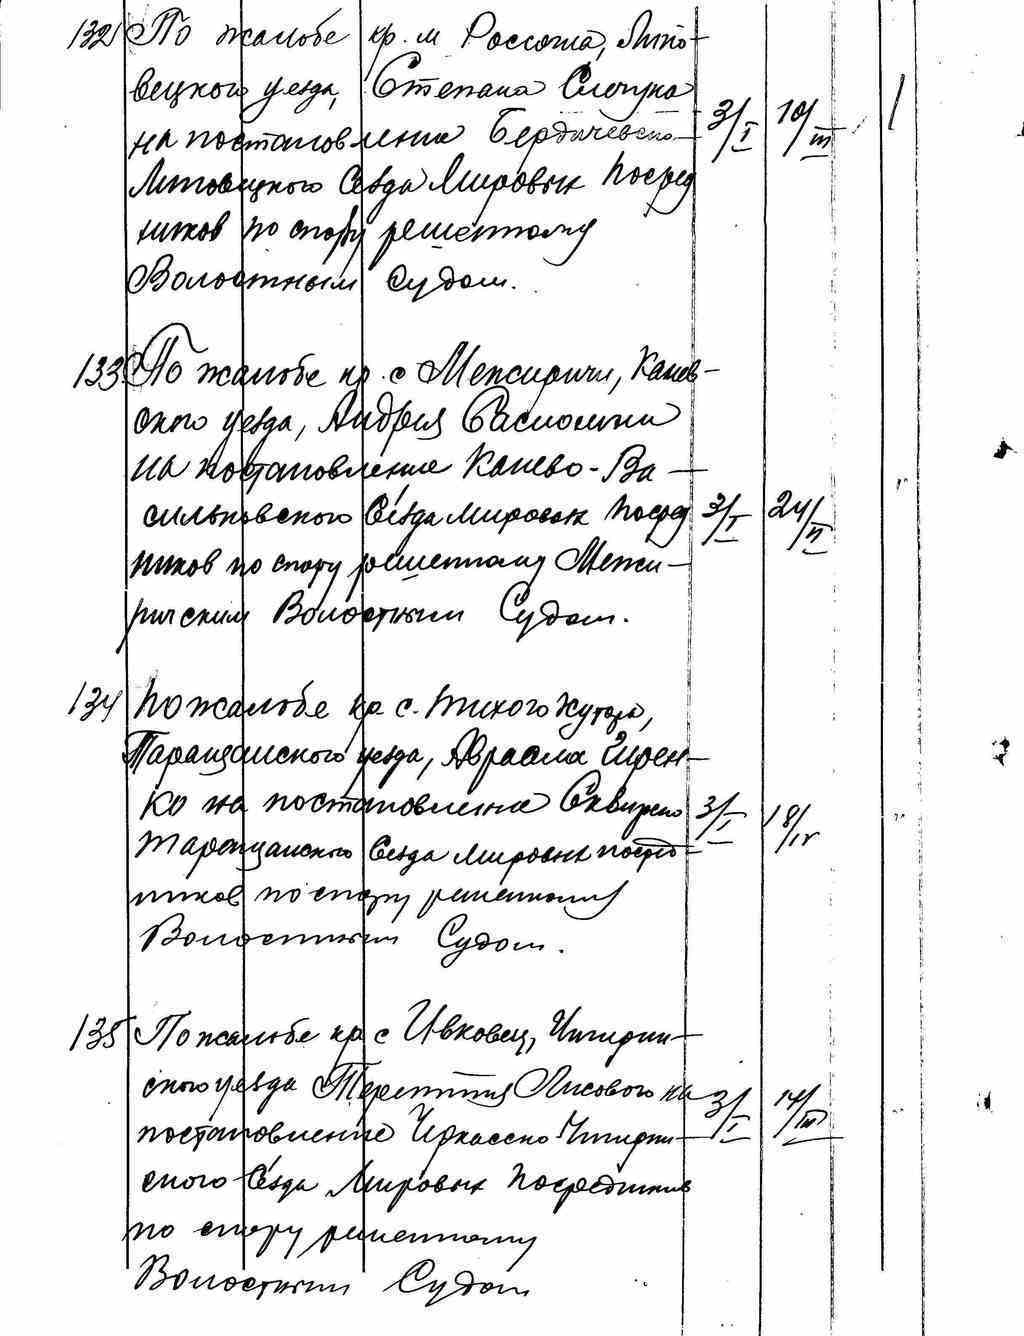 132 По жалобе кр. м Россоша, Липо-
вецкого уезда, Степана Слечука
на постановление Бердичевско- 3/I 10/III
Липовецкого Сезда Мировых Посред
ников по спору решенному
Волостным Судом.
133 По жалобе кр. с Межиричи, Канев-
ского уезда, Андрея
на постановление Канево-Ва-
сильковского Сезда мировых посред 3/I 24/II
ников по спору решенному Межи-
ричским Волостным Судом.
134 По жалобе кр с. Тихого Хутора,
Таращанского уезда, Авраама Ширен-
ко на постановление Сквирско 3/I 18/IV
Таращанского Сезда мировых посред-
ников по спору решенному
Волостным Судом.
135 По жалобе кр с Ивковец, Чигирин-
ского уезда Терентия Лисового на 3/I 14/III
постановление Черкасско-Чигирин-
ского Сезда Мировых Посредников
по спору решенному
Волостным Судом